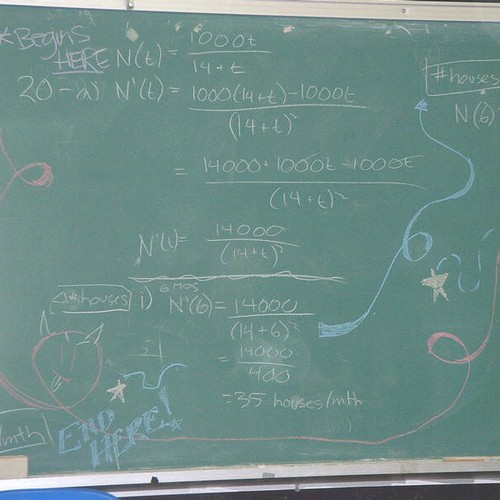 *Begins
HERE N(t) = 1000t
14+t
20-a) N'(t) = 1000(14+t)-1000t
(14+t)²
= 14000+1000t-1000t
(14+t)²
N'(t) = 14000
(14+t)²
#houses
N(6)
6 mos
i) N'(6) = 14000
(14+6)²
= 14000
400
=35 houses/mth
/mth
END
HERE!